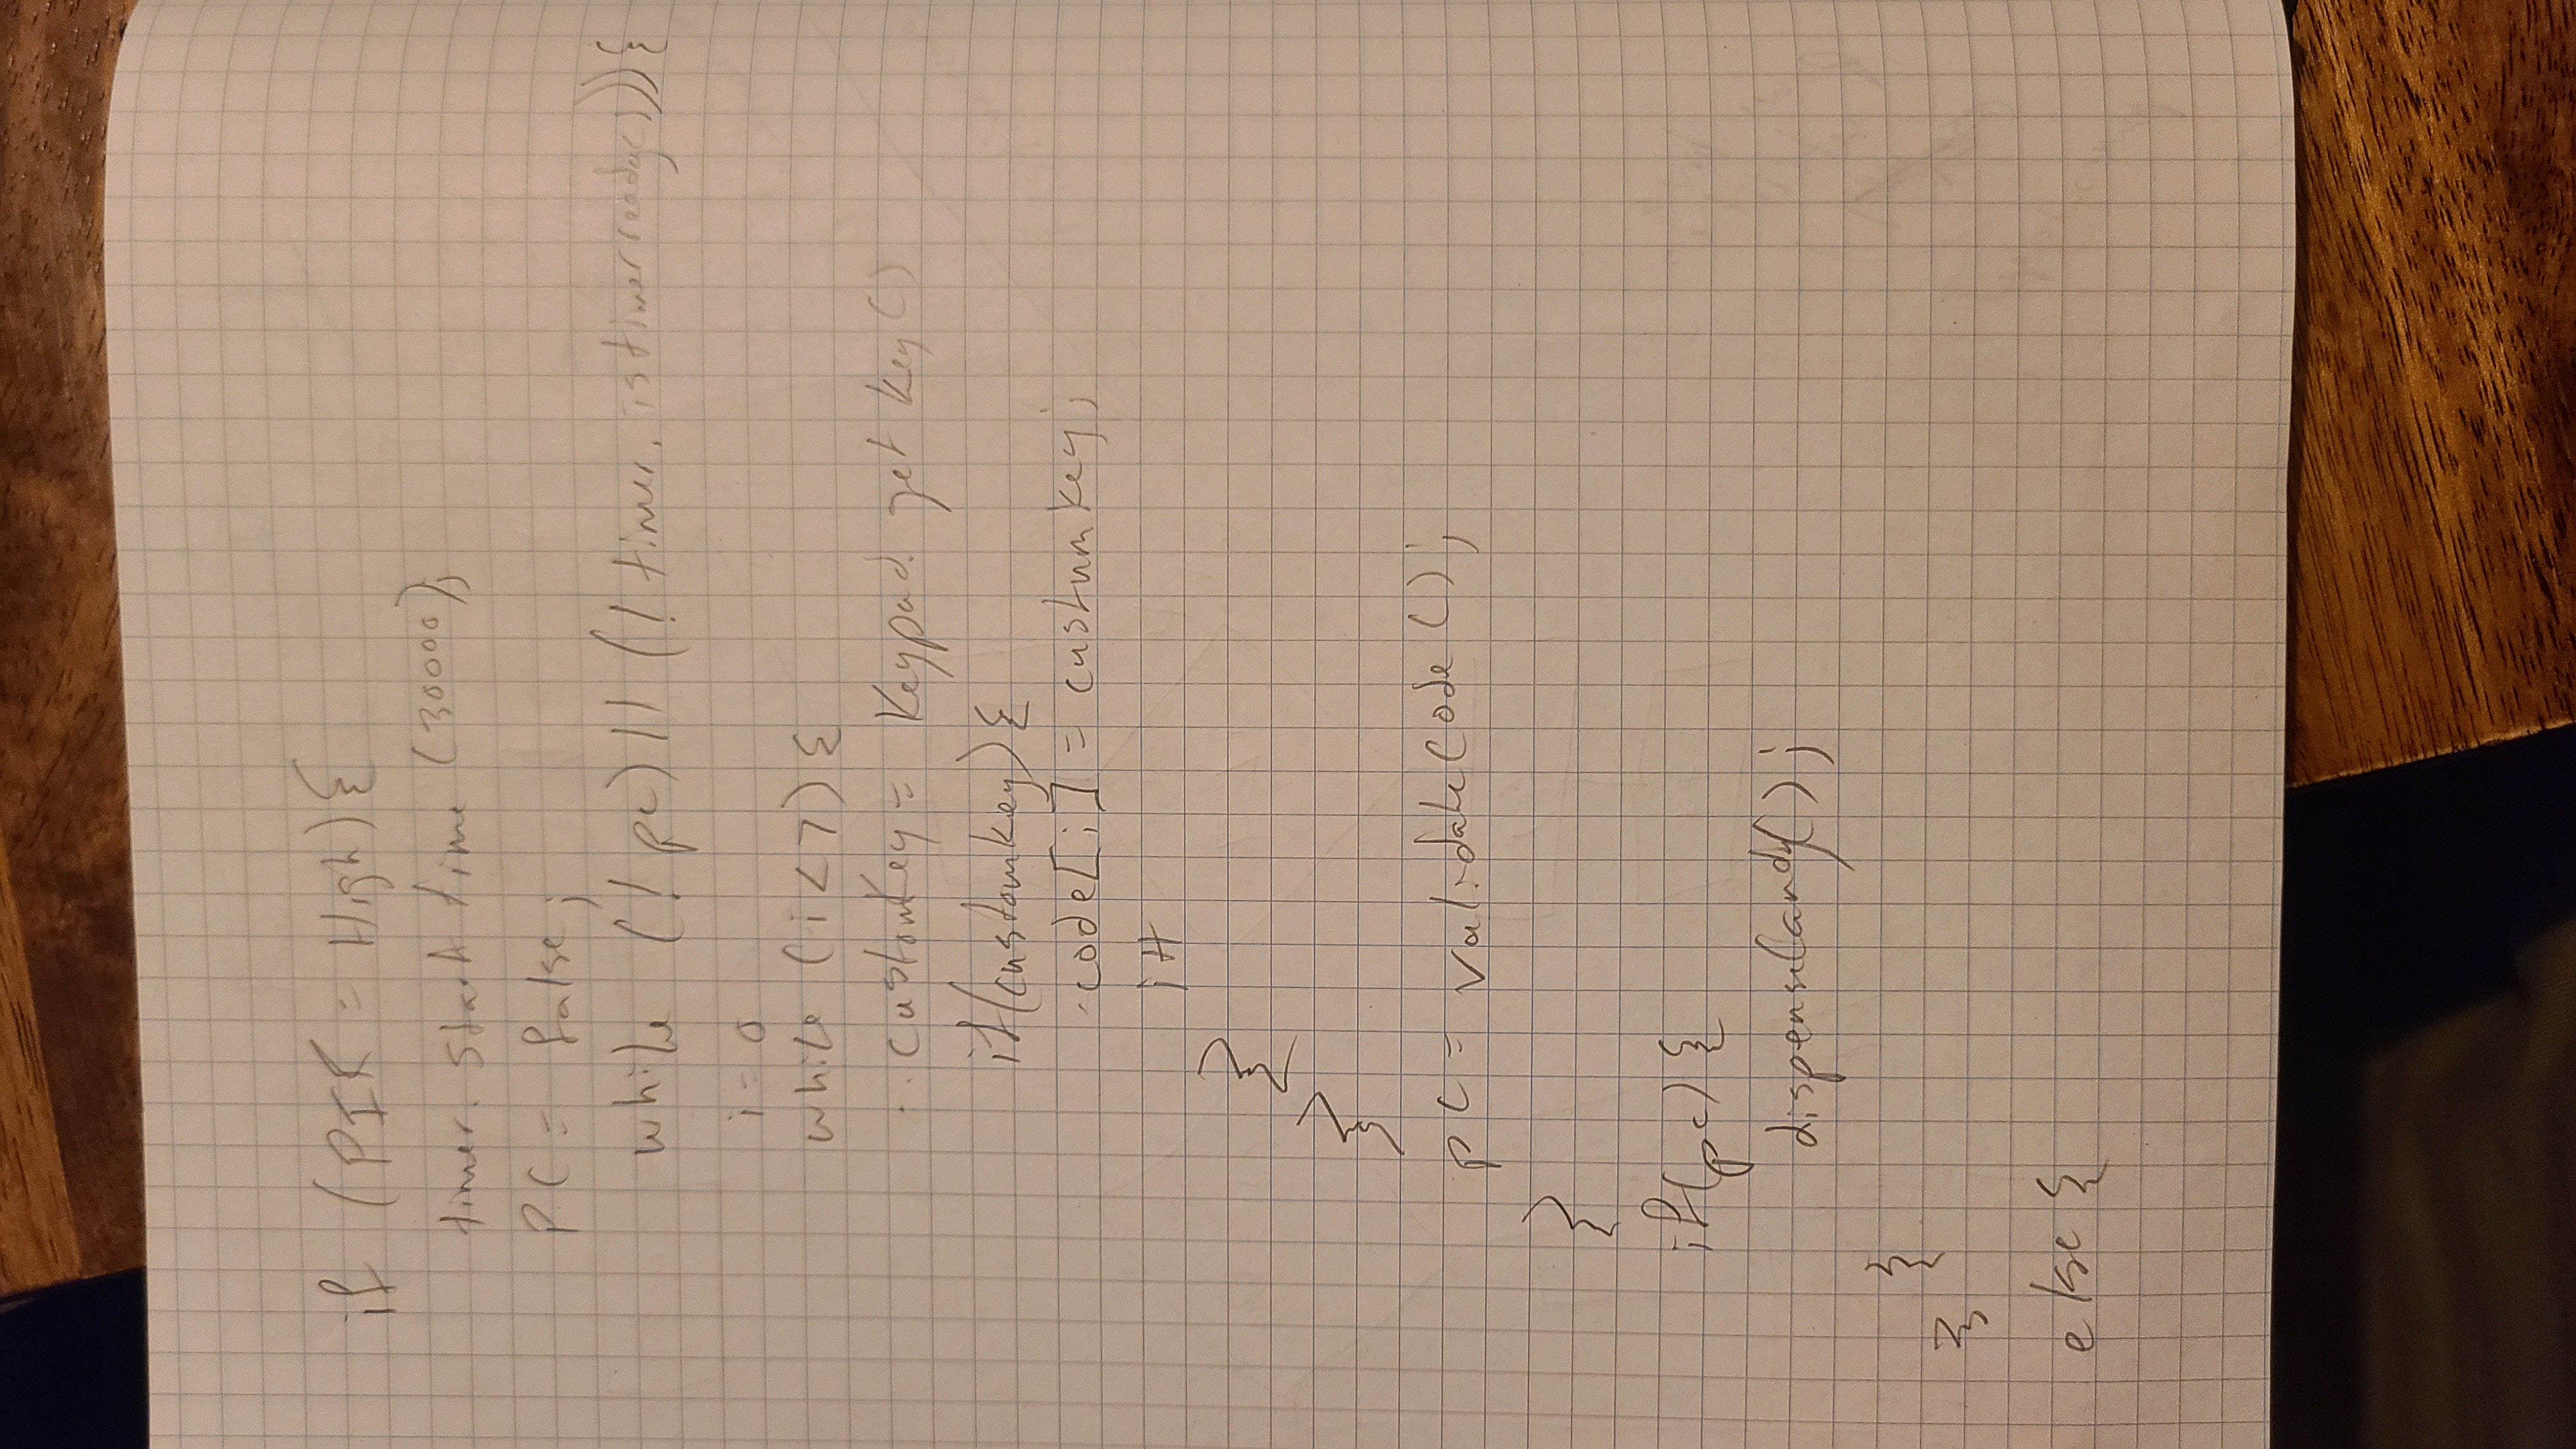 if (PIR = High){
timer. start time (30000);
PC = false;
while (! pc) || (! timer. istimerready()){
i = 0
while (i<7) {
customKey = Keypad. get key ()
if(customkey){
code[i] = custumkey;
i++
}
}
pc = validateCode ();
}
if(pc) {
dispenseCandy();
}
}
else {